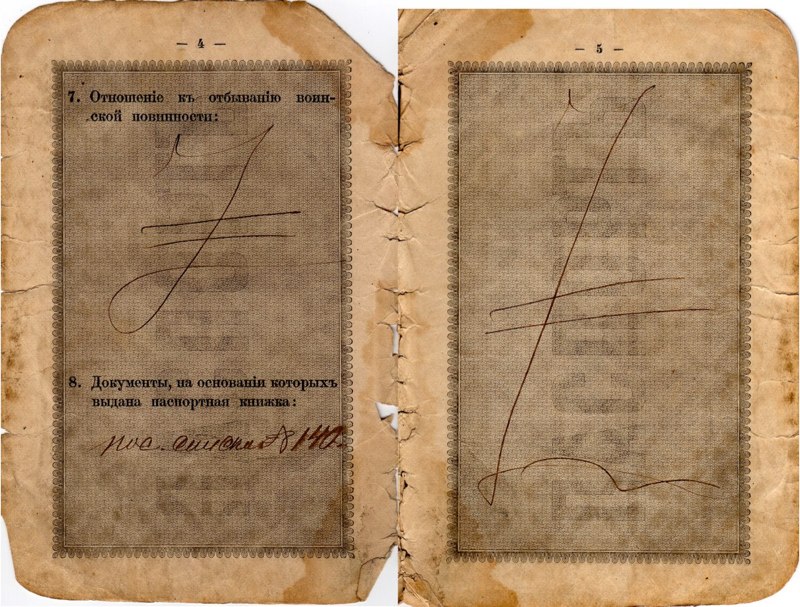 — 4 —
7. Отношеніе къ отбыванію воин-
ской повинности:
8. Документы, на основаніи которыхъ
выдана паспортная книжка:
пос. списка № 140.
— 5 —